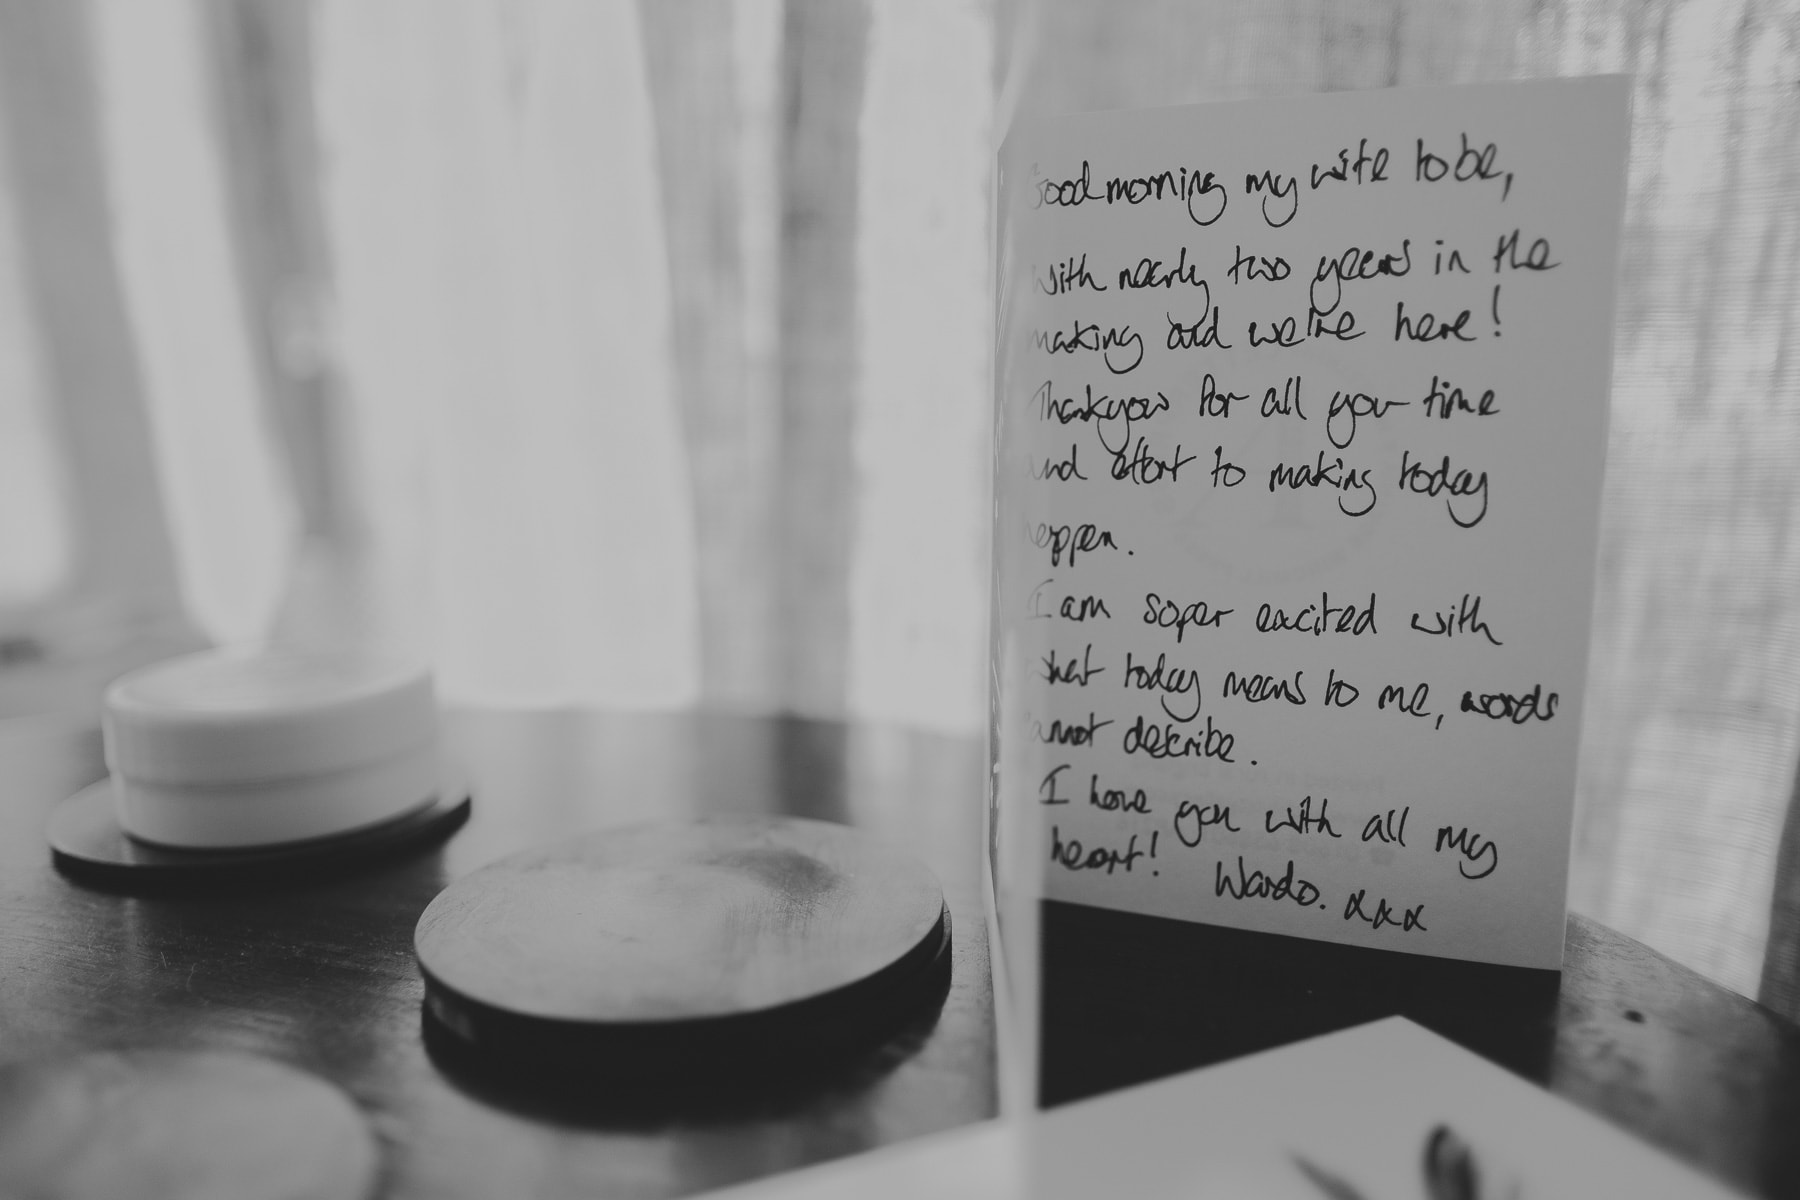 Good morning my wife to be,
With nearly two years in the
making and we're here!
Thankyou for all your time
and effort to making today
happen.
I am soper excited with
what today means to me, words
cannot describe.
I love you with all my
heart!
Wardo. xxx